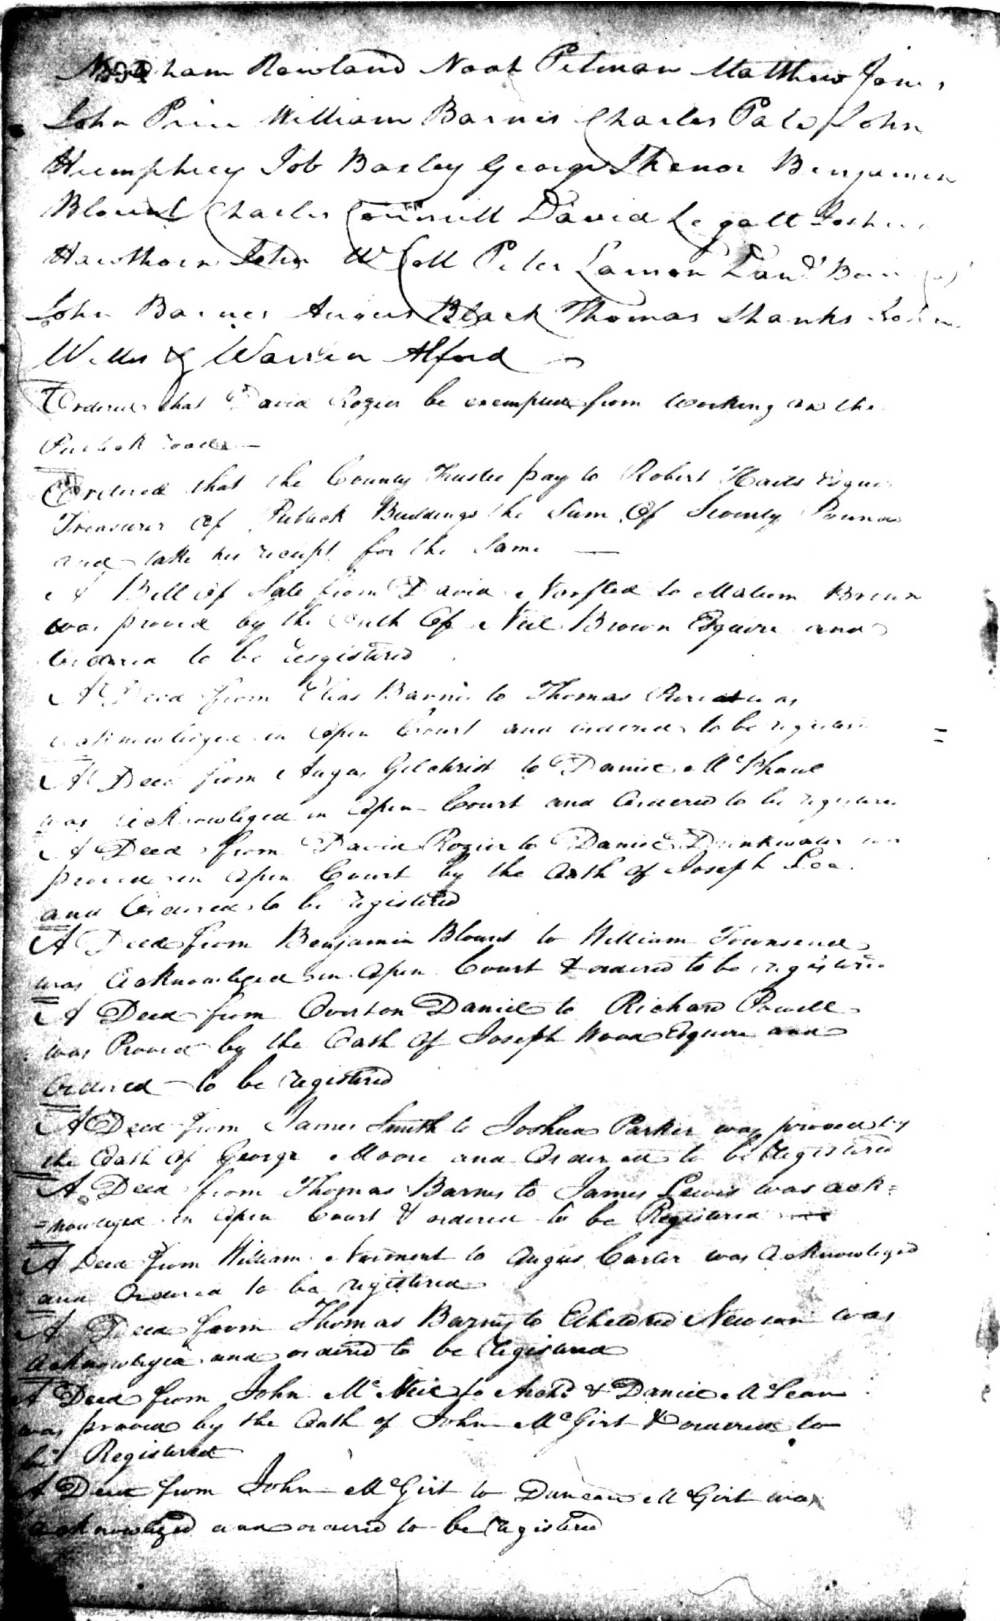 Rowland Noah Pitman Matthew Jones
John Price William Barnes Charles Pate John
Humphrey Job Baxley George Benjamin
Blount Charles Council David Legett
Hawthorn John Wm Coll Peter Lamon
John Barnes Angus Black Thomas Shanks John
Willis & Warren Alford
Ordered that David Rozier be exempted from working on the
Publick roads
Ordered that the County Trustee pay to Robert Hails Esquire
Treasurer of Publick Buildings the Sum Of Seventy Pounds
and take his receipt for the Same
A Bill of Sale from David Norfled to Malcum Brown
was proved by the Oath Of Neil Brown Esquire and
Ordered to be resgistered
A Deed from Elias Barnes to Thomas was
acknowledged in open Court and ordered to be registered
A Deed from Angus Gilchrist to Daniel McPhaul
was acknowledged in open Court and Ordered to be registered
A Deed from David Rozier to Daniel Drinkwater was
proved in open Court by the Oath of Joseph Lee
and Ordered to be registered
A Deed from Benjamin Blount to William Townsend
was Acknowledged in open Court & ordered to be registered
A Deed from Overton Daniel to Richard Powell
was Proved by the Oath Of Joseph Wood Esquire and
Ordered to be registered
A Deed from James Smith to Joshua Parker was proved by
the Oath Of George Moore and Ordered to be Registered
A Deed from Thomas Barnes to James Lewis was ack=
=nowleged in open Court & ordered to be Registered
A Deed from William Norment to Angus Carter was acknowleged
and Ordered to be registered
A Deed from Thomas Barnes to Etheldred Newsom was
acknowleged and ordered to be registered
A Deed from John McNeil to Archd & Daniel McLean
was proved by the Oath of John McGirt & ordered to
be Registered
A Deed from John McGirt to Duncan McGirt was
acknowleged and ordered to be registered